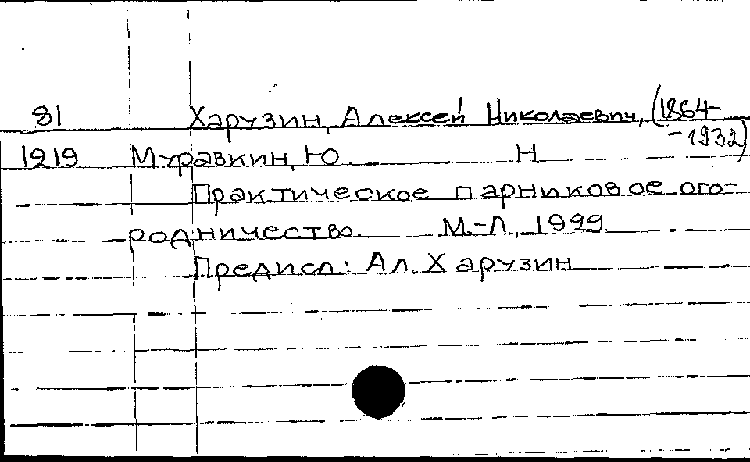 81 Харузин, Алексей Николаевич, (1864-
-1932)
1919 Муравкин, Ю. Н
Практическое парниковое ого-
родничество. М.-Л, 1999
Предисл: Ал. Харузин